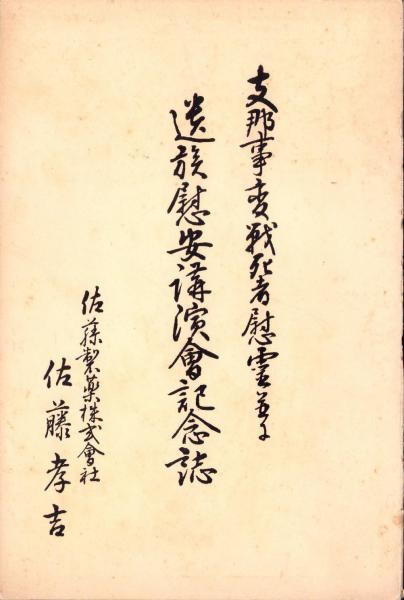 支那事変戦死者慰霊並に
遺族慰安講演會記念誌
佐藤製薬株式會社
佐藤孝吉